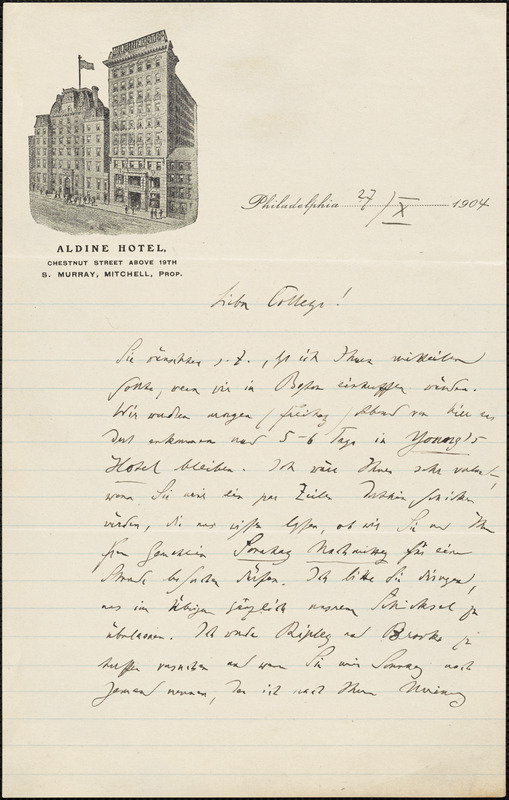 ALDINE HOTEL,
CHESTNUT STREET ABOVE 19TH
S. MURRAY, MITCHELL, PROP.
Philadelphia 27/X 1904
Lieber College!
Sie wünschten s. Z., daß ich Ihnen mitteilen
sollte, wenn wir in Boston eintreffen würden.
Wir werden morgen (Freitag) Abend von hier aus
dort ankommen und 5-6 Tage in Young's
Hotel bleiben. Ich wäre Ihnen sehr
wenn Sie mir ein par Zeilen dorthin schicken
würden, die uns wissen lassen, ob wir Sie und Ihre
Frau Gemahlin Sonntag Nachmittag für eine
Stunde besuchen dürfen. Ich bitte Sie
uns im Übrigen gänzlich unserem Schicksal zu
überlassen. Ich werde Ripley und Brooks zu
treffen versuchen und wenn Sie mir Sonntag noch
Jemand nennen, den ich nach Ihrer Meinung